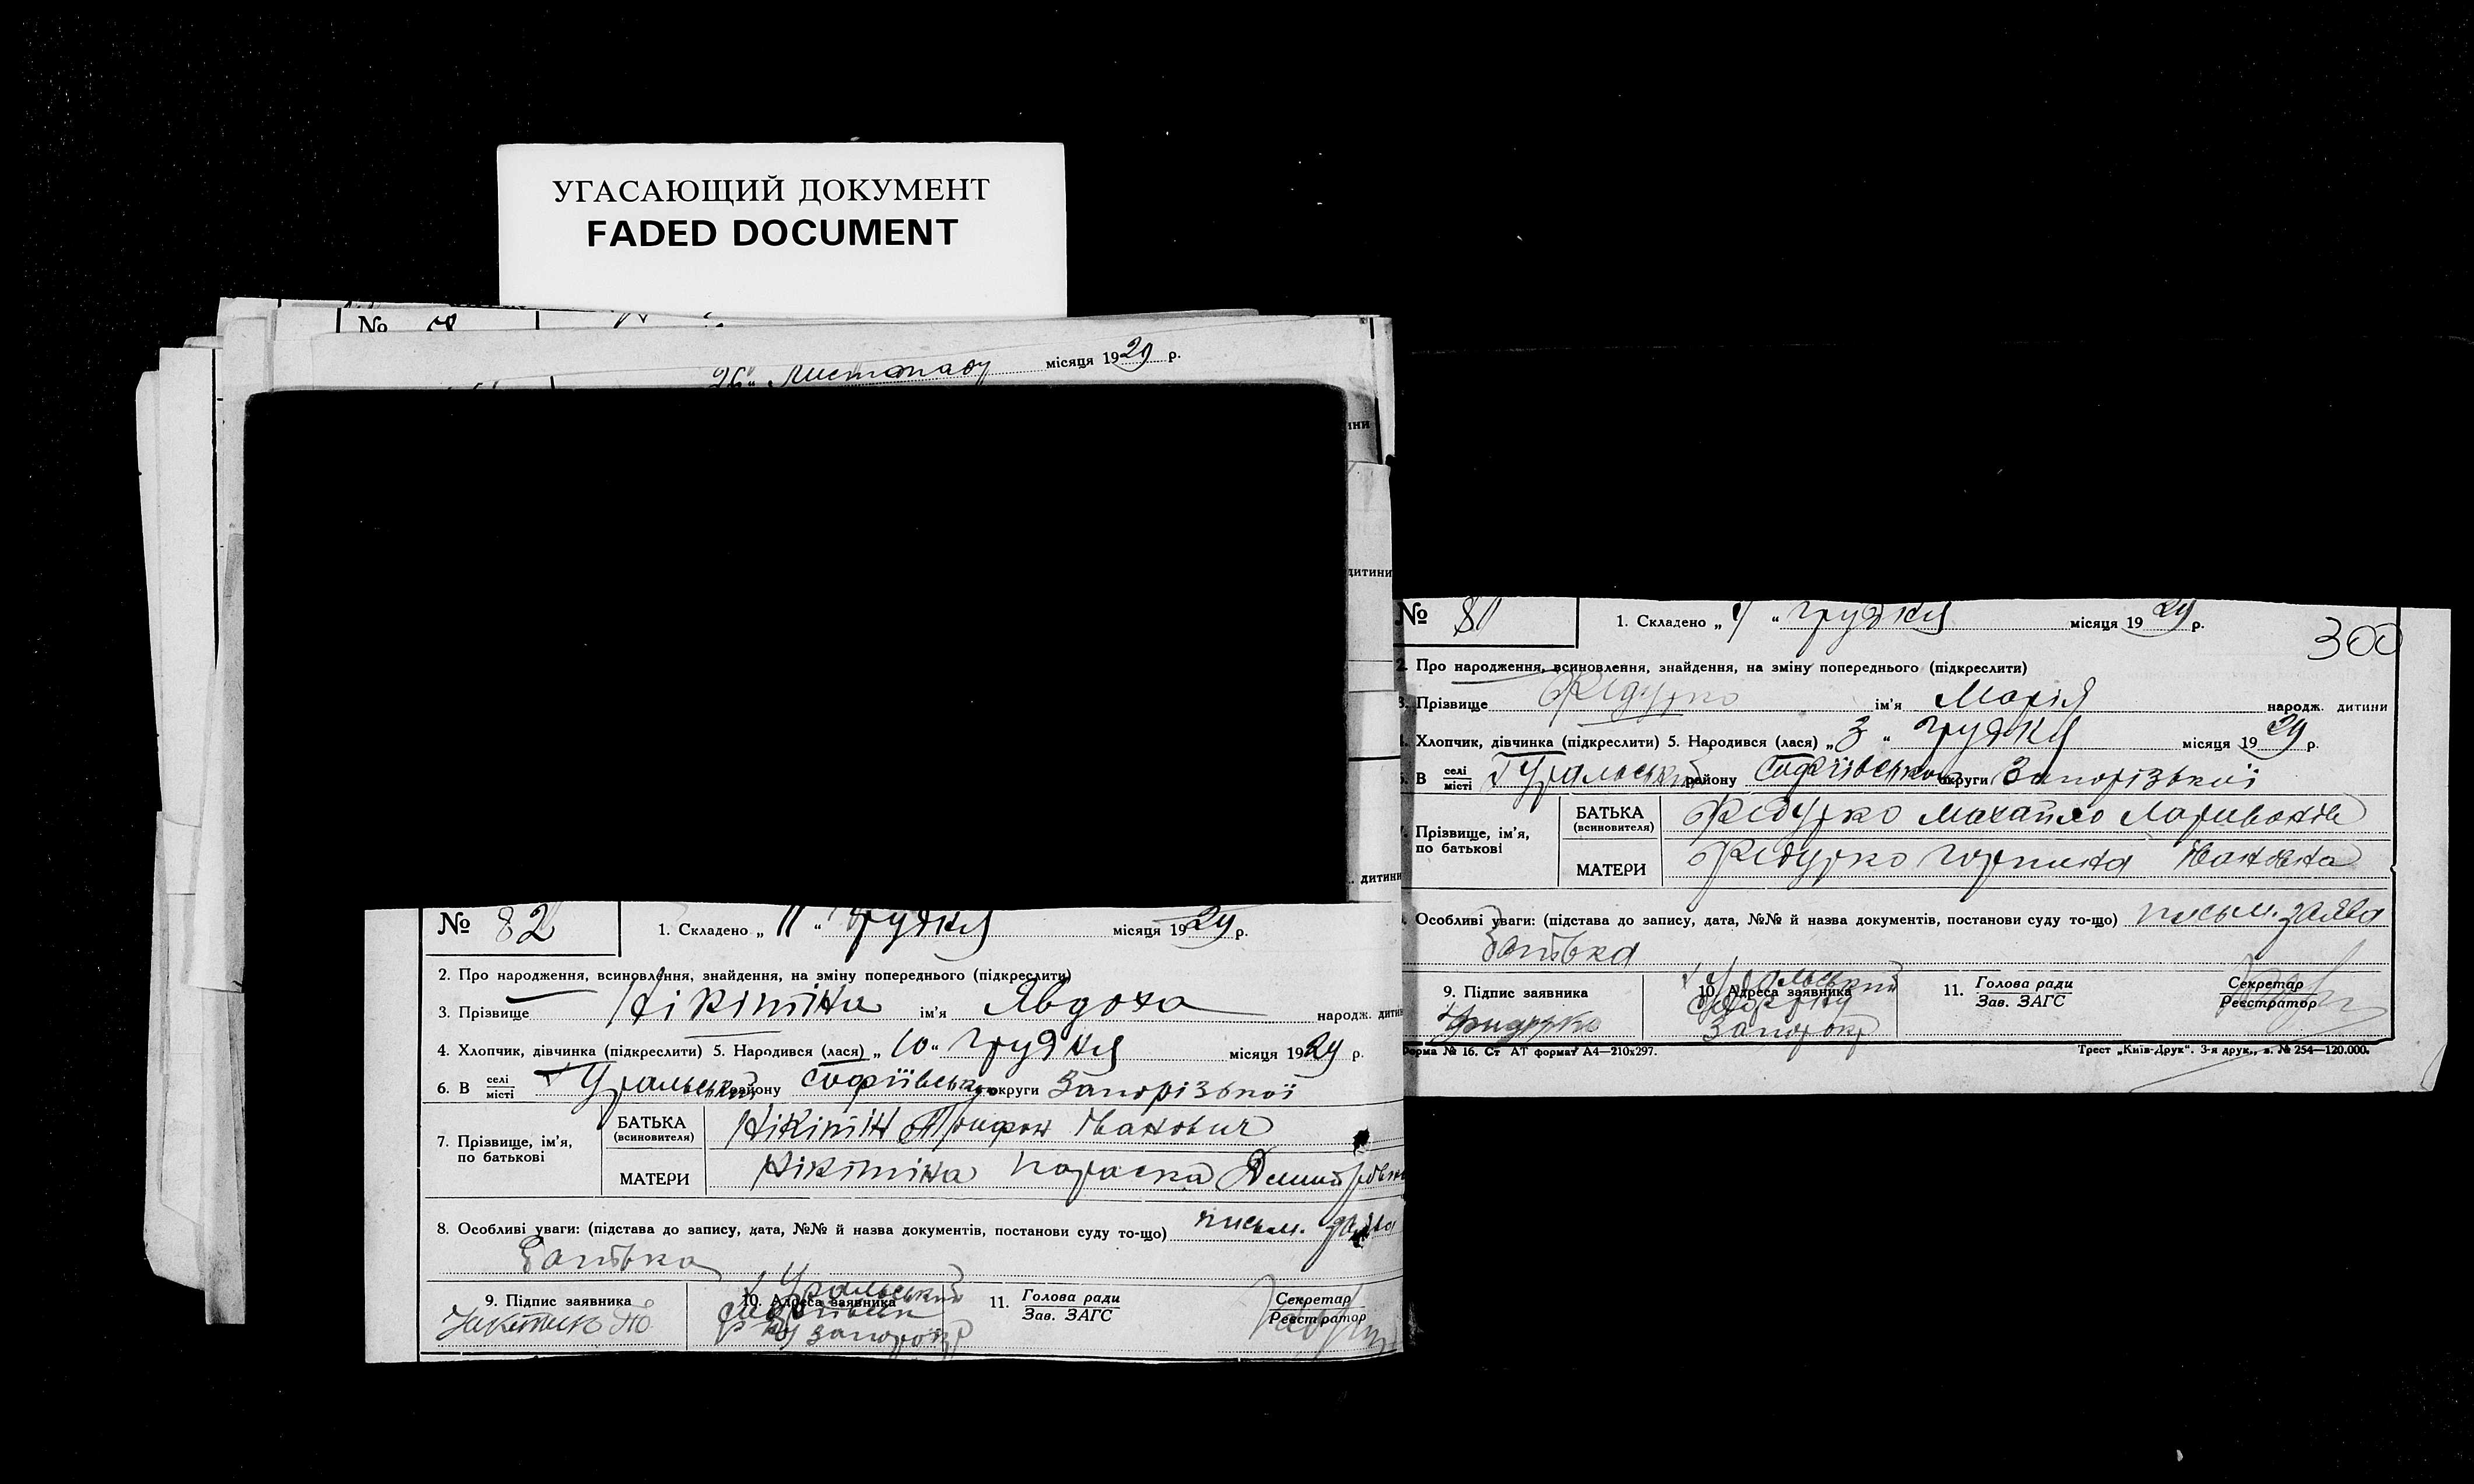 УГАСАЮЩИЙ ДОКУМЕНТ
FADED DOCUMENT
№
26 " Листопаду місяця 1929 р.
ини
дитини
дитини
№ 81 1. Складено „ 4 " грудня місяця 1929 р.
300
2. Про народження, всиновлення, знайдення, на зміну попереднього (підкреслити)
3. Прізвище Федурко ім'я Марія народж. дитини
4. Хлопчик, дівчинка (підкреслити) 5. Народився (лася) „ 3 " грудня місяця 1929 р.
6. В селі місті Уральськ району Софіївського округи Запорізької
7. Прізвище, ім'я, по батькові
БАТЬКА (всиновителя) Федурко Михайло
МАТЕРИ Федурко Горпина Івановна
8. Особливі уваги: (підстава до запису, дата, №№ й назва документів, постанови суду то-що) письм. заява
Батька
9. Підпис заявника 10. Адреса заявника 11. Голова ради Зав. ЗАГС Секретар Реєстратор
Уральський
Форма № 16. Ст АТ формат А4—210х297. Трест „Київ-Друк". 3-я друк., з. № 254—120.000.
№ 82 1. Складено „ 11 " грудня місяця 1929 р.
2. Про народження, всиновлення, знайдення, на зміну попереднього (підкреслити)
3. Прізвище Нікітіна ім'я Явдоха народж. дитин
4. Хлопчик, дівчинка (підкреслити) 5. Народився (лася) „ 10 " грудня місяця 1929 р.
6. В селі місті Уральський району Софіївського округи Запорізької
7. Прізвище, ім'я, по батькові
БАТЬКА (всиновителя) Нікітін Трифон Іванович
МАТЕРИ Нікітіна Параска Дмитровна
8. Особливі уваги: (підстава до запису, дата, №№ й назва документів, постанови суду то-що) письм. заява
Батька
9. Підпис заявника 10. Адреса заявника 11. Голова ради Зав. ЗАГС Секретар Реєстратор
Уральський